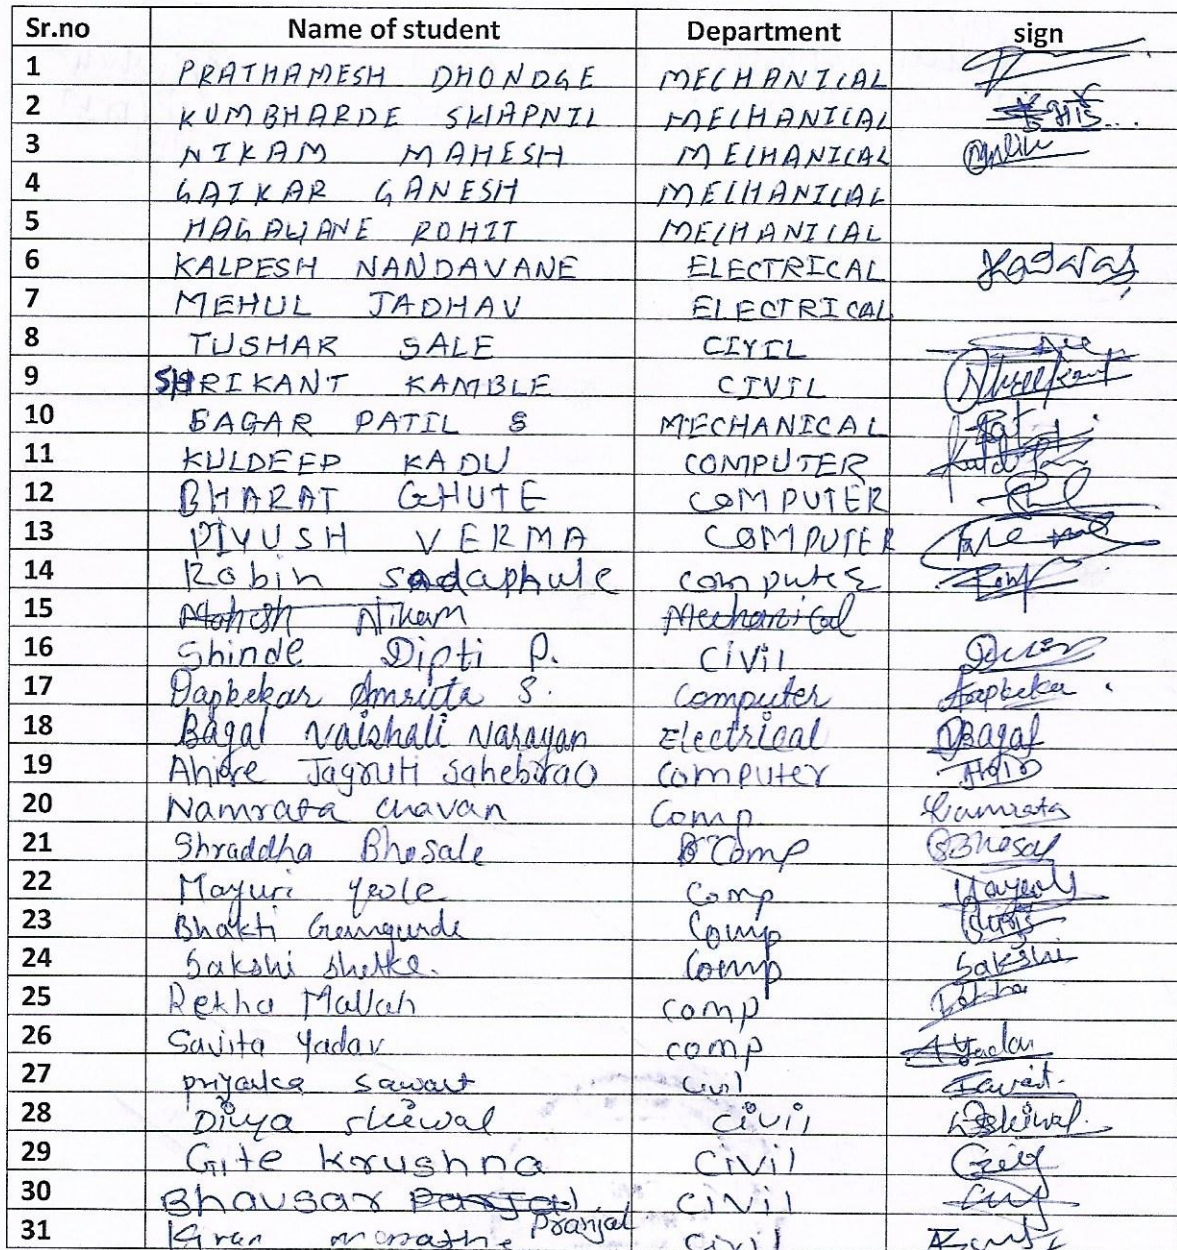 Sr.no Name of student Department sign
1 PRATHAMESH DHONDGE MECHANICAL
2 KUMBHARDE SWAPNIL MECHANICAL
3 NIKAM MAHESH MECHANICAL
4 GAIKAR GANESH MECHANICAL
5 HAGAWANE ROHIT MECHANICAL
6 KALPESH NANDAVANE ELECTRICAL
7 MEHUL JADHAV ELECTRICAL
8 TUSHAR SALE CIVIL
9 SHRIKANT KAMBLE CIVIL
10 SAGAR PATIL S MECHANICAL
11 KULDEEP KADU COMPUTER
12 BHARAT GHUTE COMPUTER
13 PIYUSH VERMA COMPUTER
14 Robin sadaphule computer
15 Mahesh Nikam Mechanical
16 Shinde Dipti P. Civil
17 Dapkekar Amruta S. Computer Dapkekar
18 Bagal Vaishali Narayan Electrical VBagal
19 Ahire Jagruti Sahebrao Computer
20 Namrata Chavan Comp Namrata
21 Shraddha Bhosale Comp SBhosal
22 Mayuri Yeole Comp
23 Bhakti Comp
24 Sakshi Shelke. Comp Sakshi
25 Rekha Mallah comp Rekha
26 Savita Yadav comp Yadav
27 priyanka sawant civil Sawant.
28 Diya skiwal civil Skiwal.
29 Gite Krushna Civil
30 Bhavsar Pranjal Civil
31 Kiran marathe Civil